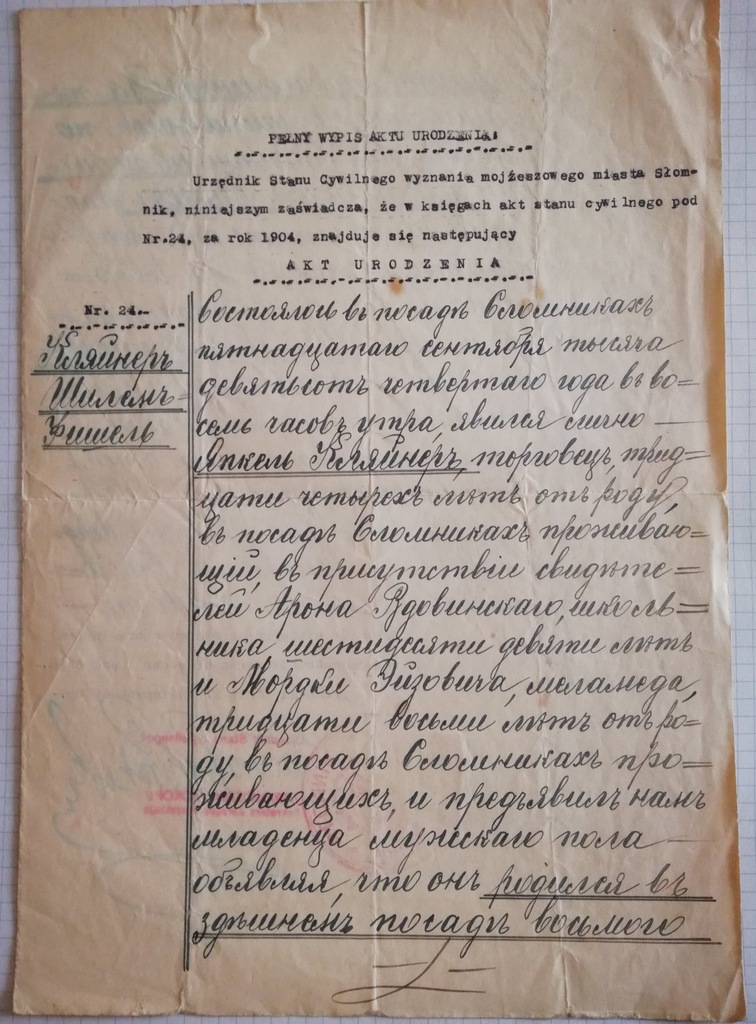 PEŁNY WYPIS AKTU URODZENIA:
Urzędnik Stanu Cywilnego wyznania mojżeszowego miasta Słom-
nik, niniejszym zaświadcza, że w księgach akt stanu cywilnego pod
Nr.24, za rok 1904, znajduje się następujący
AKT URODZENIA
Nr. 24.-
Кляйнеръ
Шиленъ-
Фишель
Состоялось въ посадѣ Сломникахъ
пятнадцатаго сентября тысяча
девятьсотъ четвертаго года въ во=
семь часовъ утра, явился лично —
Янкель Кляйнеръ, торговецъ, трид=
цати четырехъ лѣтъ отъ роду,
въ посадѣ Сломникахъ проживаю=
щій, въ присутствіи свидѣте=
лей Арона Вдовинскаго, школь=
ника, шестидесяти девяти лѣтъ
и Мордки Эйзовича, меламеда,
тридцати восьми лѣтъ отъ ро=
ду, въ посадѣ Сломникахъ про=
живающихъ, и предъявилъ намъ
младенца мужскаго пола —
объявляя, что онъ родился въ
здѣшнемъ посадѣ восьмого